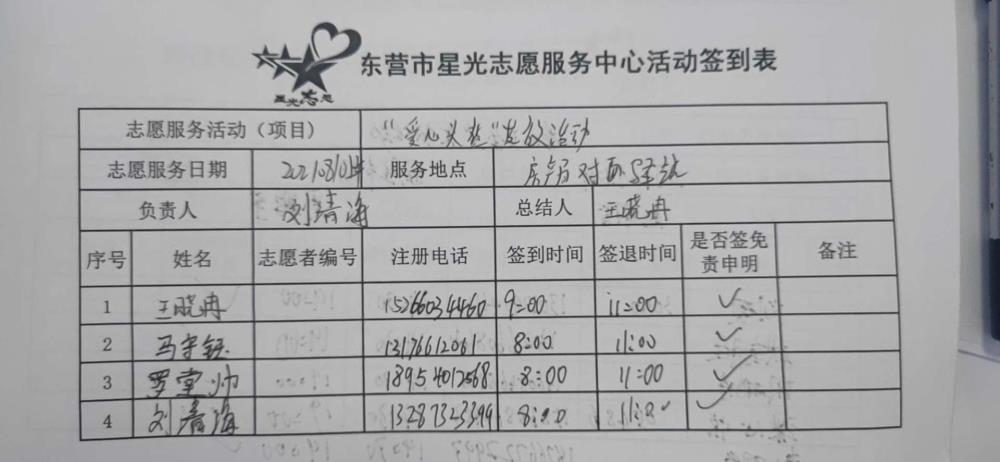 星光志愿
东营市星光志愿服务中心活动签到表
志愿服务活动（项目） "爱心义赠"发放活动
志愿服务日期 服务地点 对面驿站
负责人 刘清海 总结人 王晓冉
序号 姓名 志愿者编号 注册电话 签到时间 签退时间 是否签免责申明 备注
1 王晓冉 15266034460 9:00 11:00 ✓
2 马守钰 13176612061 8:00 11:00 ✓
3 罗堂帅 18954012568 8:00 11:00 ✓
4 刘清海 13287323399 8:00 11:00 ✓